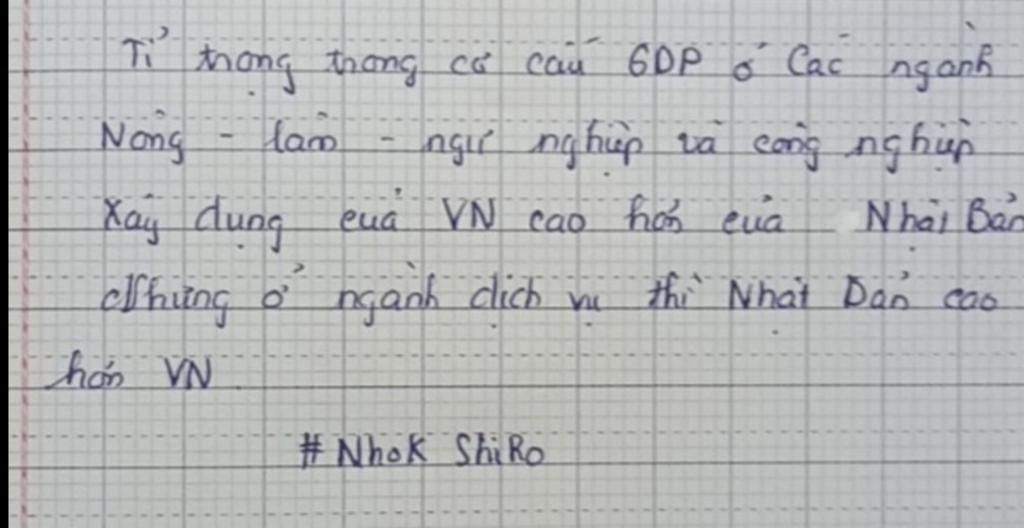 Tỉ trọng trong cơ cấu GDP ở Các ngành
Nông - lâm - ngư nghiệp và công nghiệp
Xây dựng của VN cao hơn của Nhật Bản
Nhưng ở ngành dịch vụ thì Nhật Bản cao
hơn VN
# Nhok ShiRo